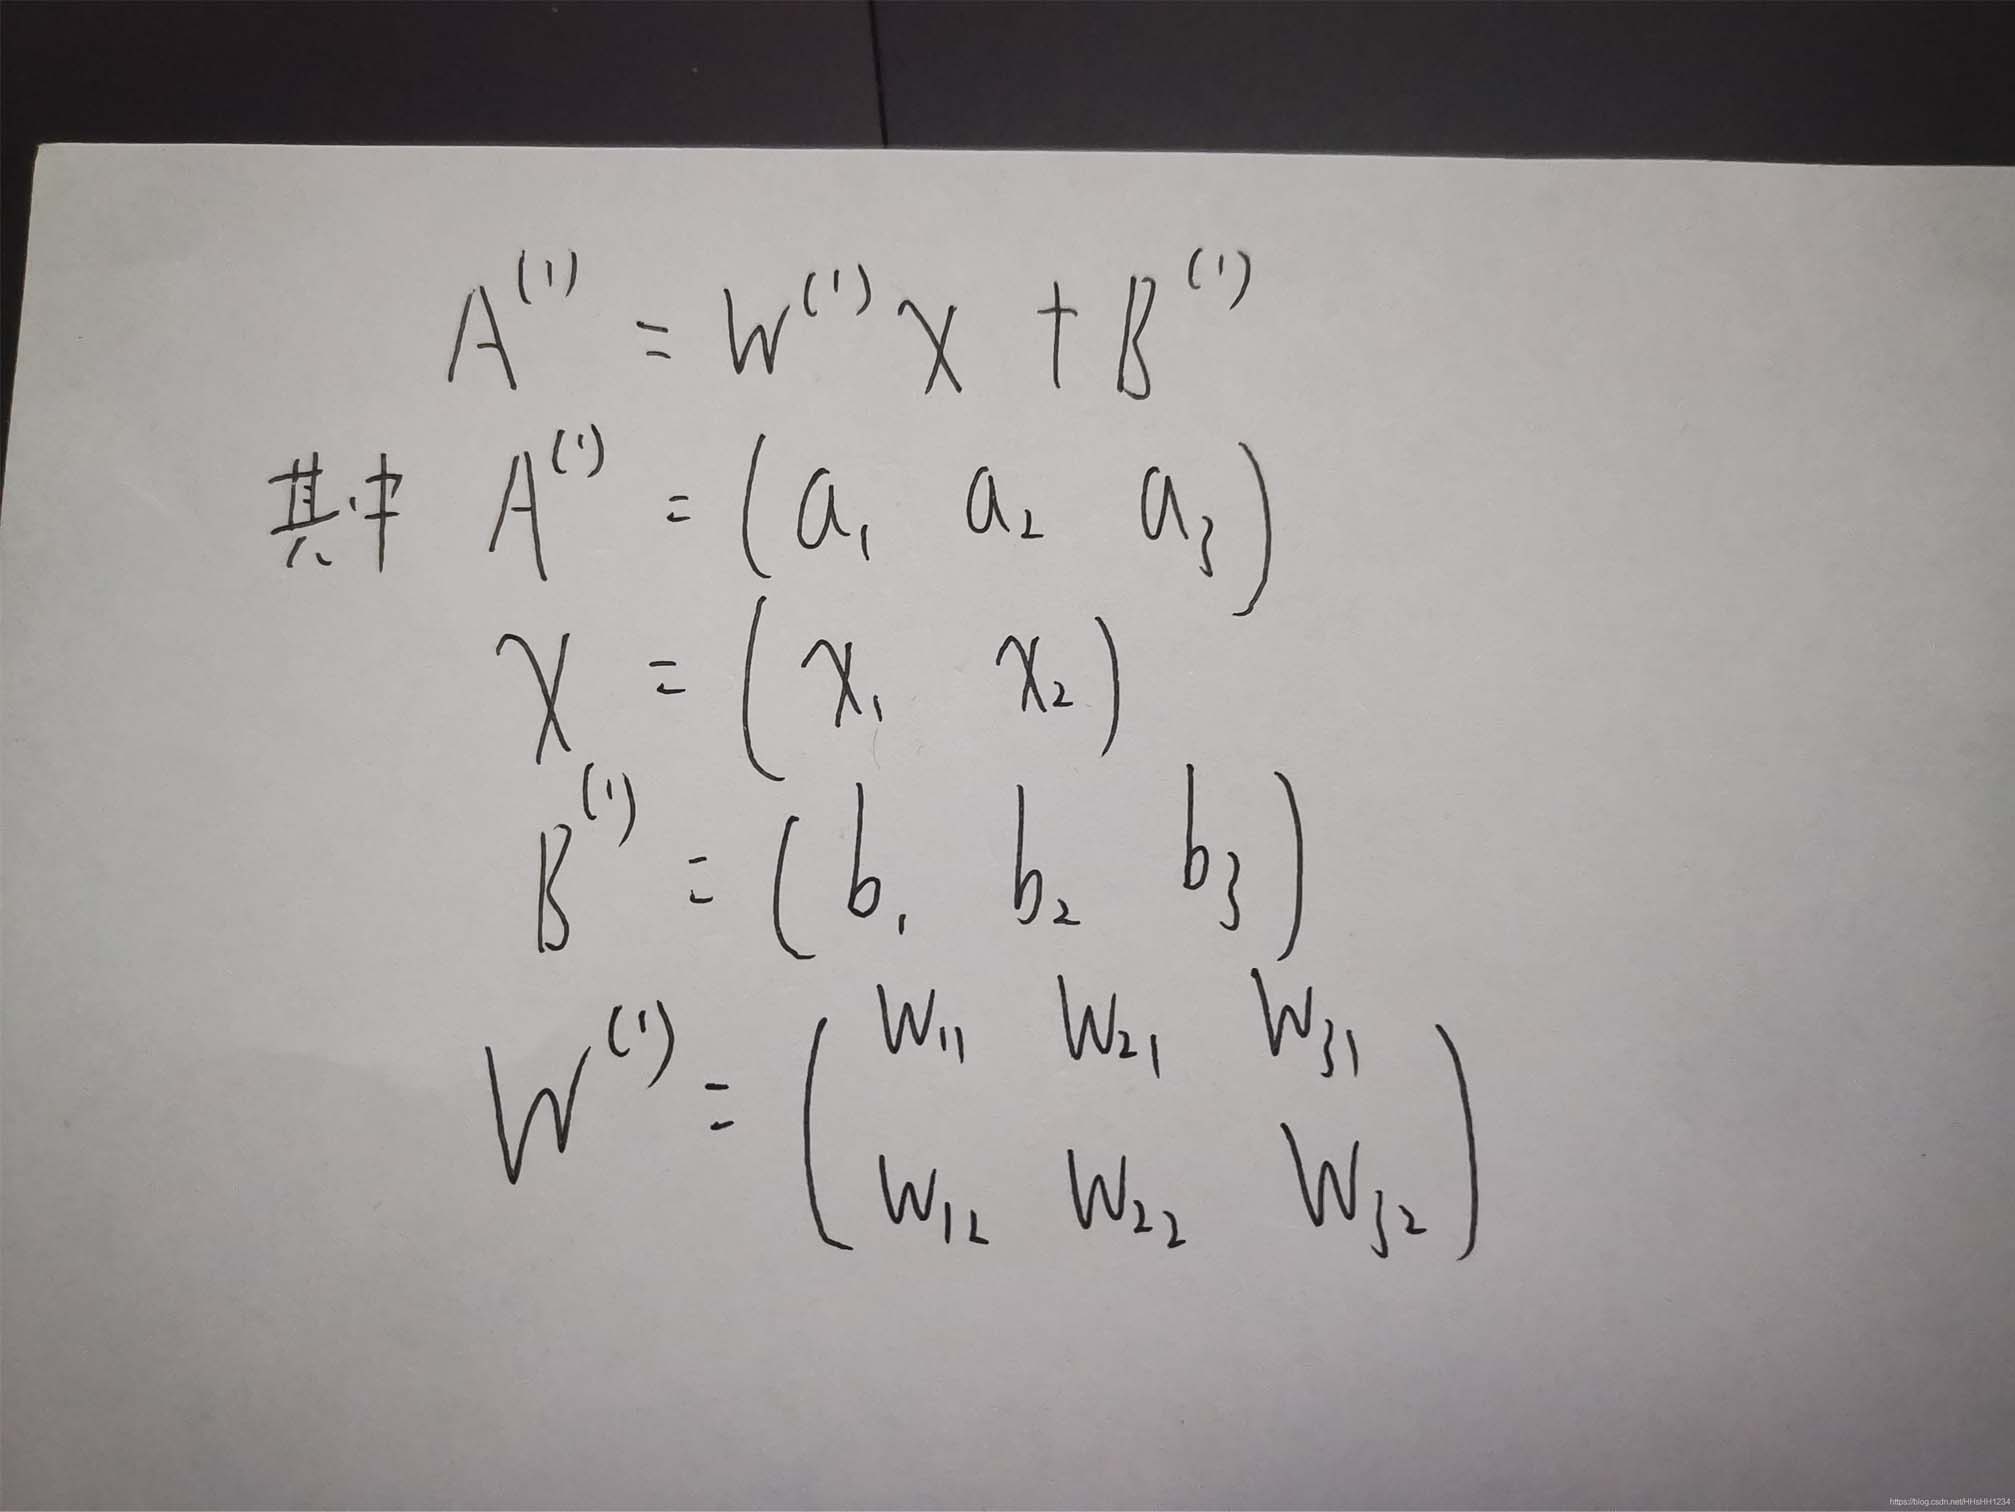 A^(1) = W^(1) X + B^(1)
其中 A^(1) = (a₁ a₂ a₃)
X = (x₁ x₂)
B^(1) = (b₁ b₂ b₃)
W^(1) = (w₁₁ w₂₁ w₃₁
w₁₂ w₂₂ w₃₂)
https://blog.csdn.net/HHsHH1234